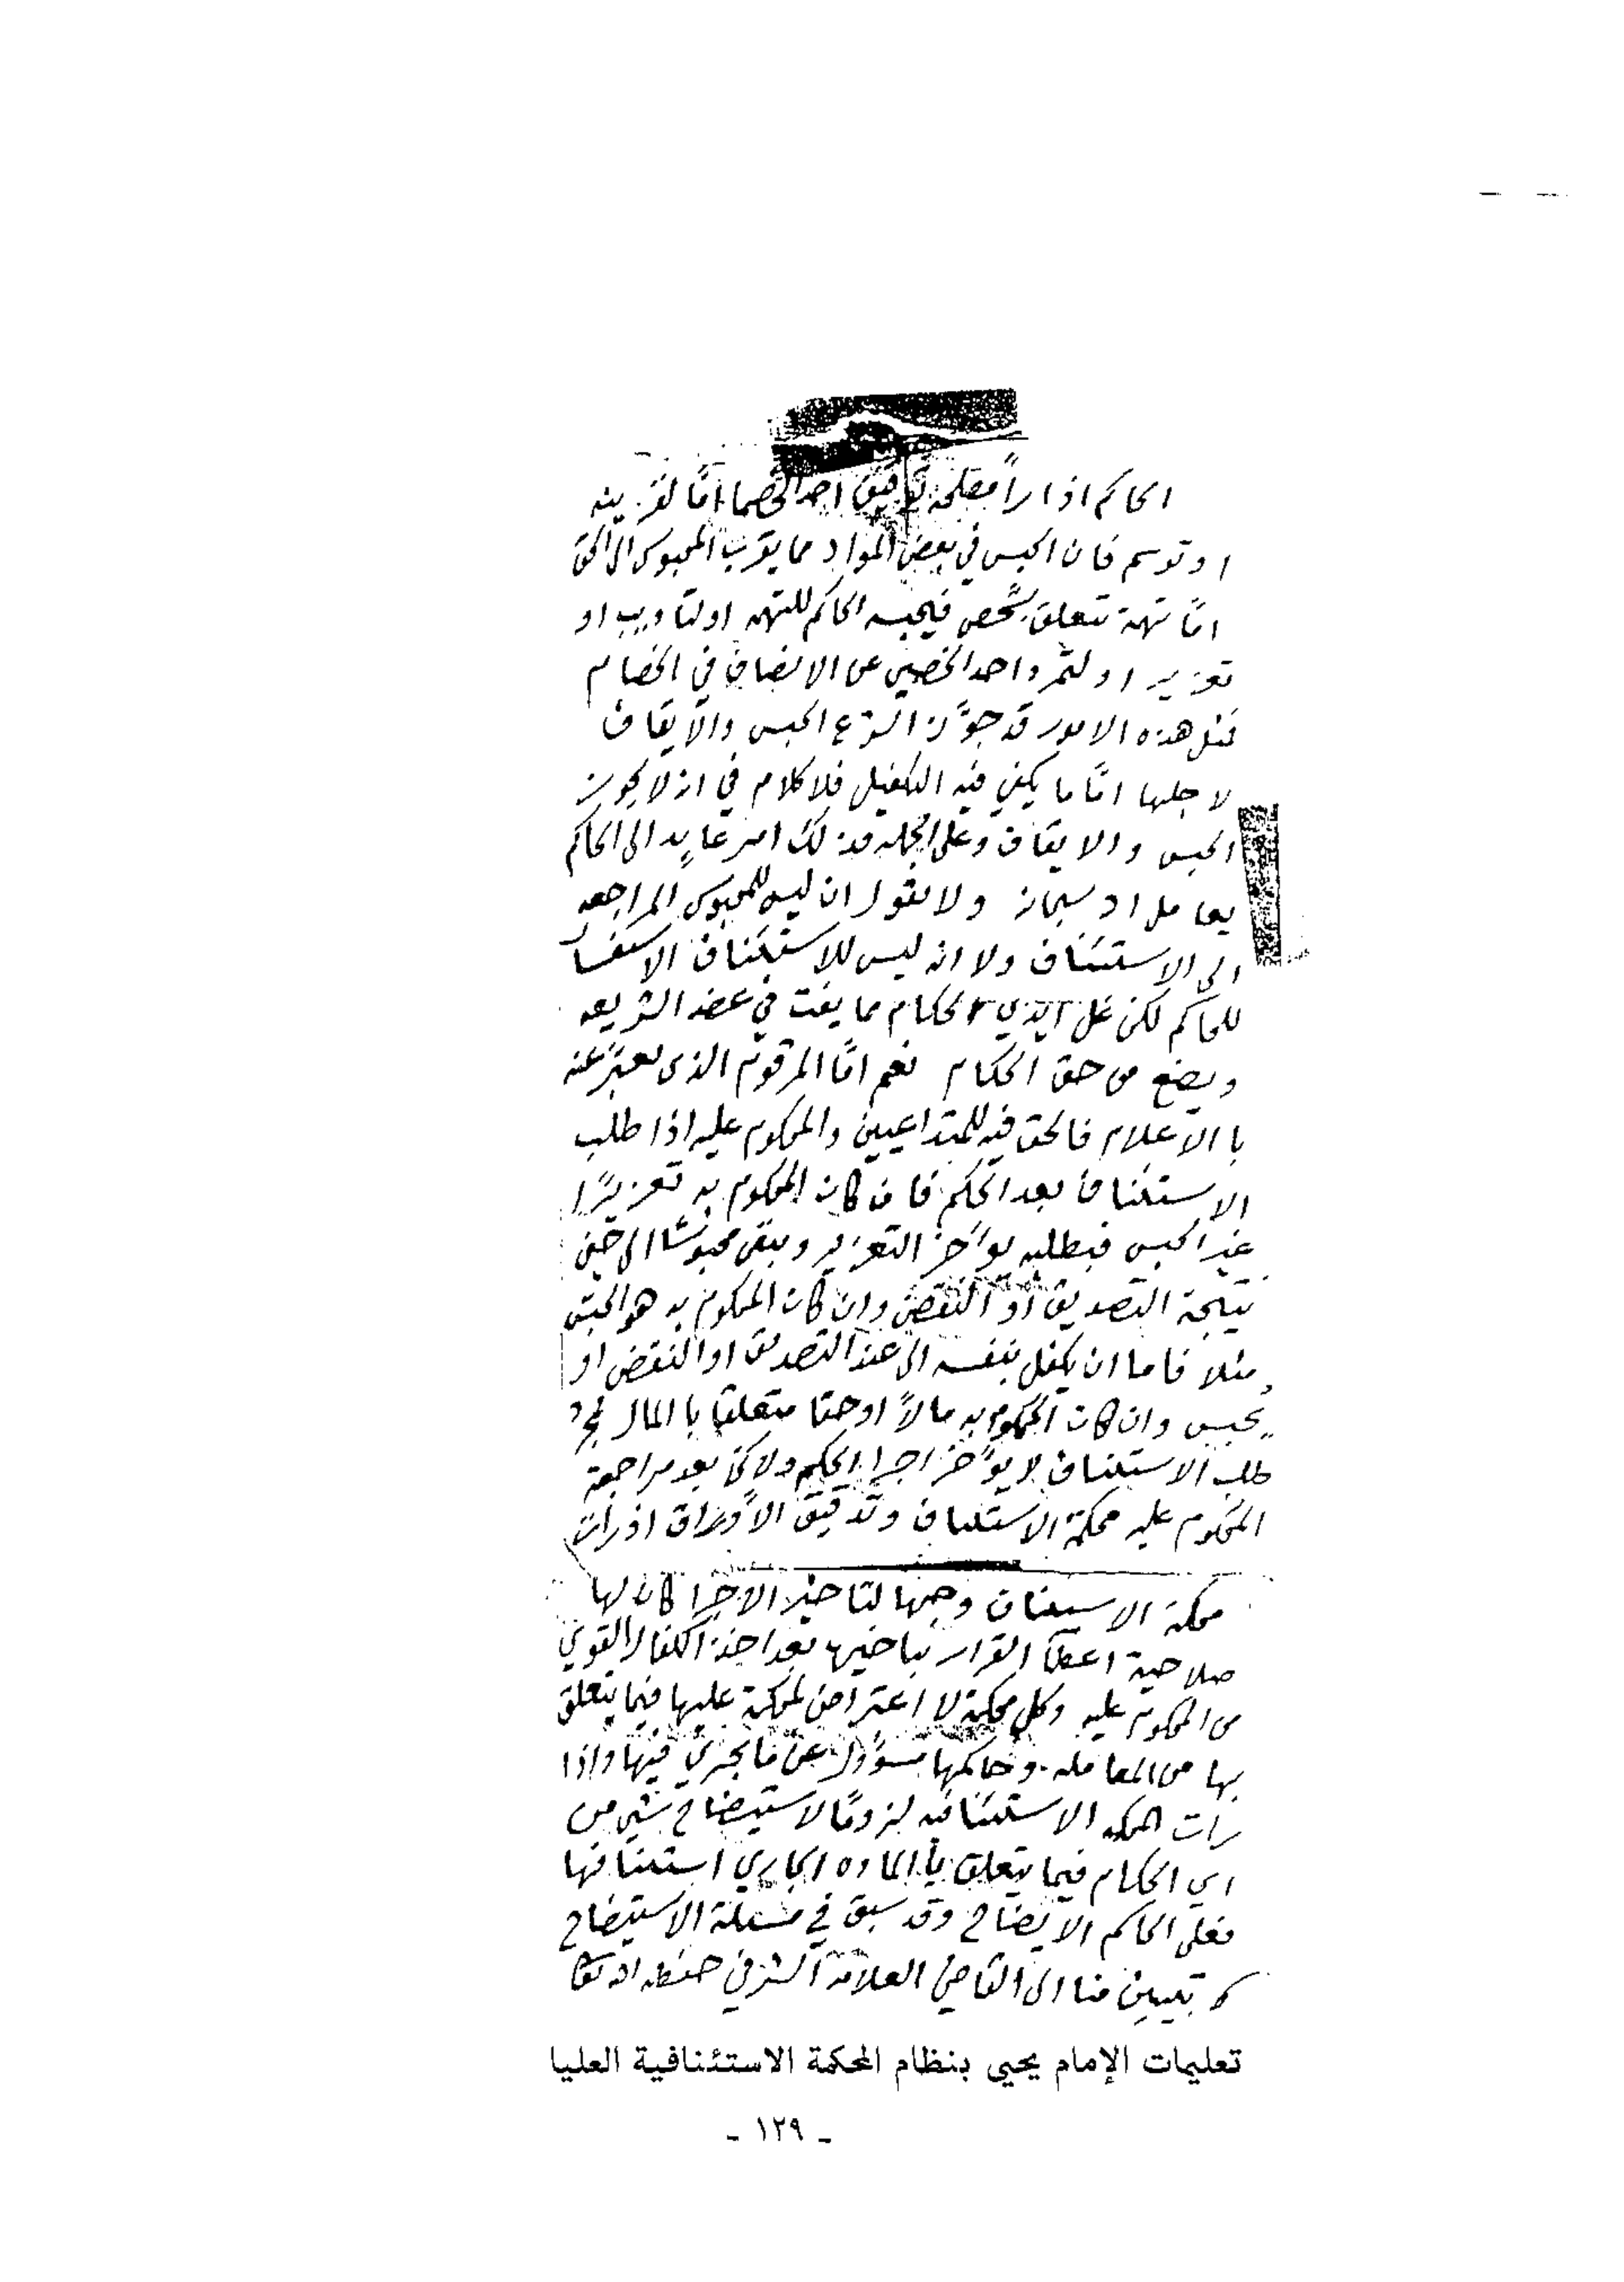 الحاكم اذا رأ مصلحة توقيف احد الخصما امّا لقرينه
او توسم فان الحبس في بعض المواد مما يقرب المحبوس الى الحق
امّا تهمة تتعلق بشخص فيحبسه الحاكم للتهمه او لتاديب او
تعزير او لتمرد احد الخصمين عن الانصاف في الخصام
فمثل هذه الامور قد جوّز الشرع الحبس والايقاف
لاجلها امّا ما يكفي فيه التكفيل فلا كلام في انه لا يجوز
الحبس والايقاف وعلى الجمله فذلك امر عايد الى الحاكم
يعامل الله سبحانه ولا نقول ان ليس للمحبوس المراجعه
الى الاستئناف ولا انه ليس للاستئناف الاستفسار
للحاكم لكن غل ايدي الحكام مما يفت في عضد الشريعه
ويضع من حق الحكام نعم امّا المرقوم الذى يعبّر عنه
باالاعلام فالحق فيه للمتداعيين والمحكوم عليه اذا طلب
الاستئناف بعد الحكم فان كان المحكوم به تعزيرًا
غير الحبس فبطلبه يؤخر التعزير ويبقى محبوسًا الى حين
نتيجة التصديق او النقض وان كان المحكوم به هو الحبس
مثلا فاما ان يكفل بنفسه الى عند التصديق او النقض او
يحبس وان كان المحكوم به مالاً او حقا متعلقا باالمال فمجرد
طلب الاستئناف لا يؤخر اجرا الحكم ولاكن بعد مراجعة
المحكوم عليه محكمة الاستئناف وتدقيق الأوراق اذ رأت
محكمة الاستئناف وجهًا لتاخير الاجرا كان لها
صلاحية اعطآ القرار بتاخيره بعد اخذ الكفال القوي
من المحكوم عليه وكل محكمة لا اعتراض لمحكمة عليها فيما يتعلق
بها من المعامله وحاكمها مسؤول عن ما يجري فيها واذا
رات المحكمه الاستئنافيه لزومًا لاستيضاح شي من
اي الحكام فيما يتعلق باالماده الجاري استئنافها
فعلى الحاكم الايضاح وقد سبق في مسئلة الاستيضاح
تبيين منا الى القاضي العلامة الشرفي حفظه الله تعا
تعليمات الإمام يحيى بنظام المحكمة الاستئنافية العليا
- ١٢٩ -